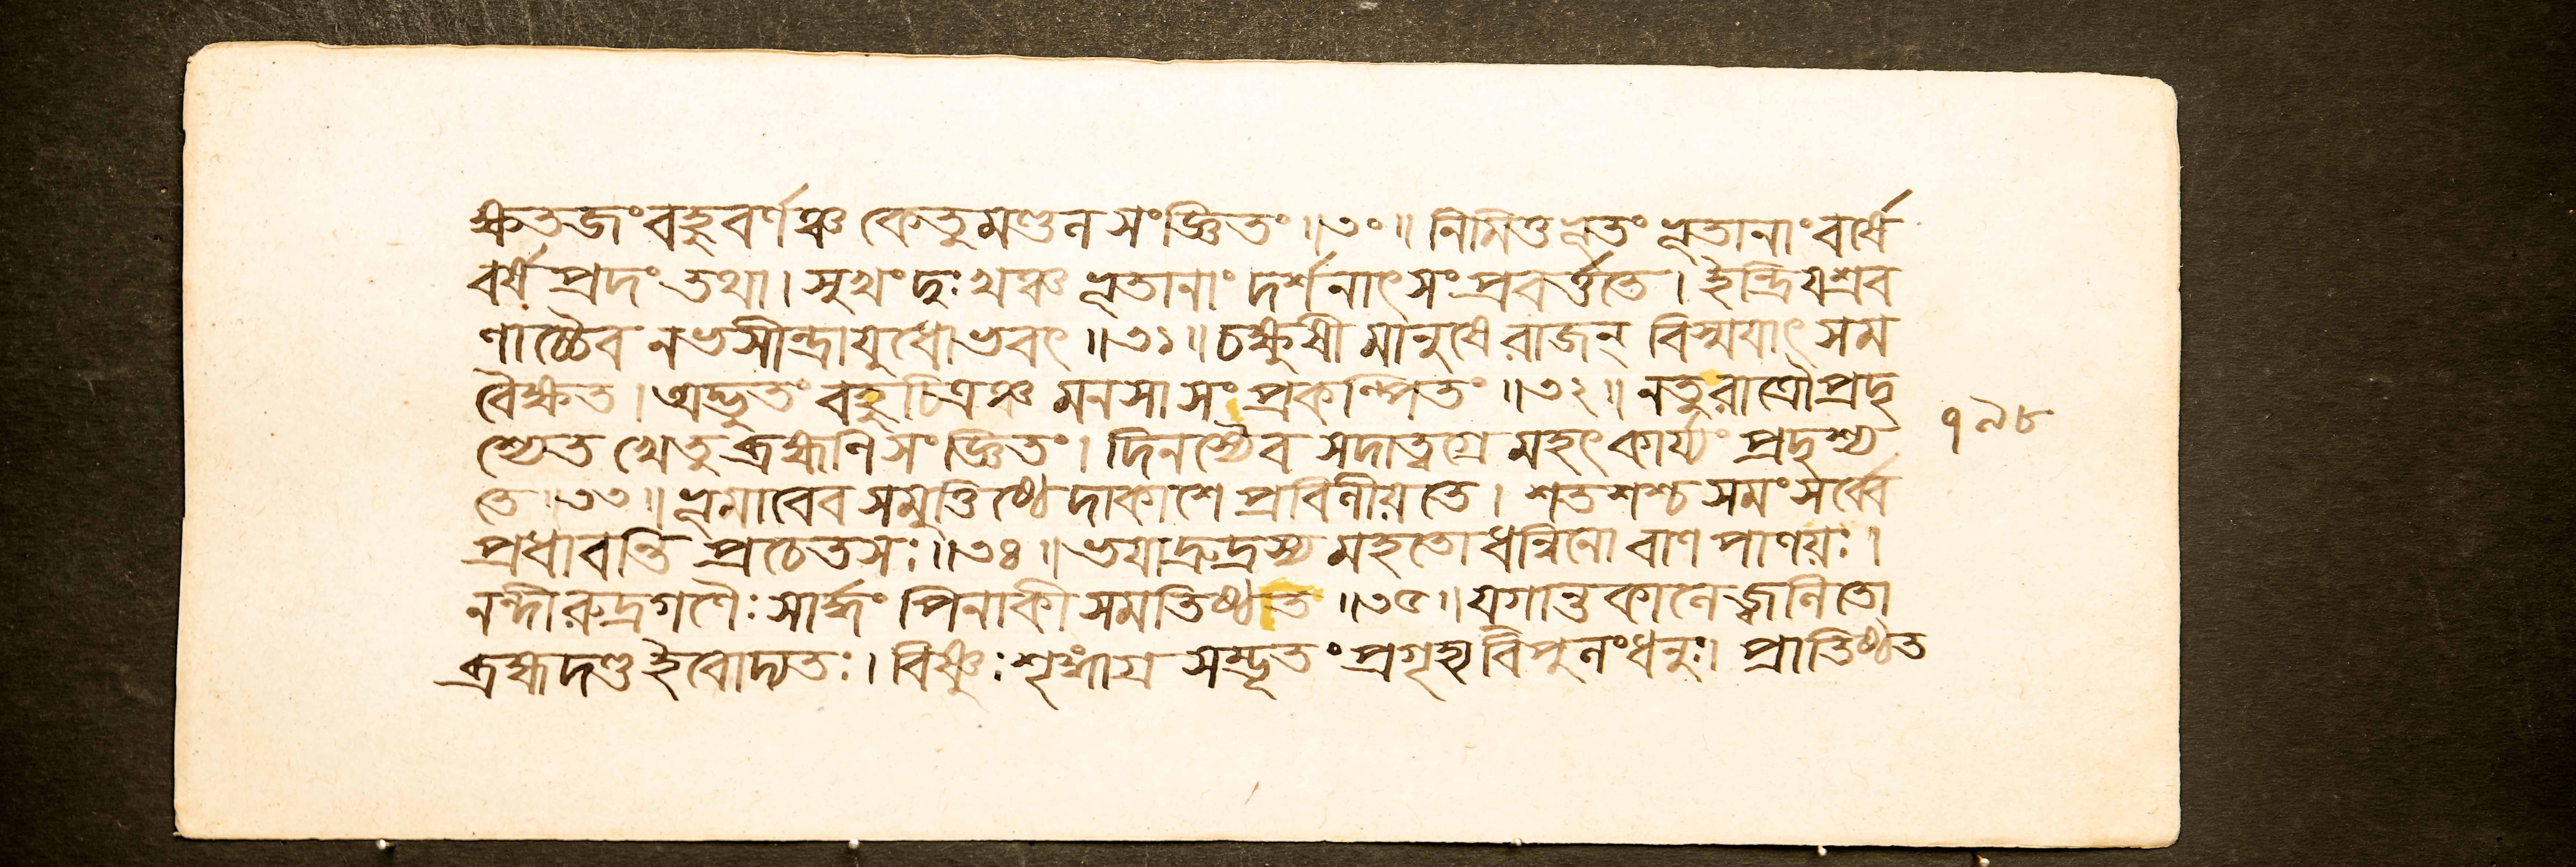 ক্ষতজং বহুবর্ণঞ্চ কেতুমণ্ডল সংজ্ঞিতং ॥৩০॥ নিমিত্তভূতং ভূতানাং বর্ষে
বর্ষপ্রদং তথা। সুখং দুঃখঞ্চ ভূতানাং দর্শনাৎ সংপ্রবর্ত্ততে। ইন্দ্রিয়শ্রব
ণাচ্চৈব নভসীন্দ্রায়ুধোভবৎ ॥৩১॥ চক্ষুষী মানুষে রাজন্ বিস্ময়াৎ সম
বৈক্ষত। অদ্ভুতং বহুচিত্রঞ্চ মনসা সংপ্রকল্পিতং ॥৩২॥ নতু রাত্রৌ প্রদৃ
শ্যেত খেতু ব্রহ্মণি সংজ্ঞিতং। দিনস্যৈব সদাত্বগ্রে মহৎ কার্য্যং প্রদৃশ্য
তে ॥৩৩॥ ভূমাবেব সমুত্তিষ্ঠেদাকাশে প্রবিলীয়তে। শতশশ্চ সমং সর্ব্বে
প্রধাবন্তি প্রচেতসঃ ॥৩৪॥ ভয়াদ্রুদ্রস্য মহতো ধন্বিনো বাণ পাণয়ঃ।
নন্দীরুদ্রগণৈঃ সার্দ্ধং পিনাকী সমতিষ্ঠত ॥৩৫॥ যুগান্তকালে জ্বলিতো
ব্রহ্মদণ্ড ইবোদ্যতঃ। বিষ্ণুঃ শৃঙ্গাগ্র সম্ভূতং প্রগৃহ্য বিপুলং ধনুঃ। প্রাতিষ্ঠত
১৯৮